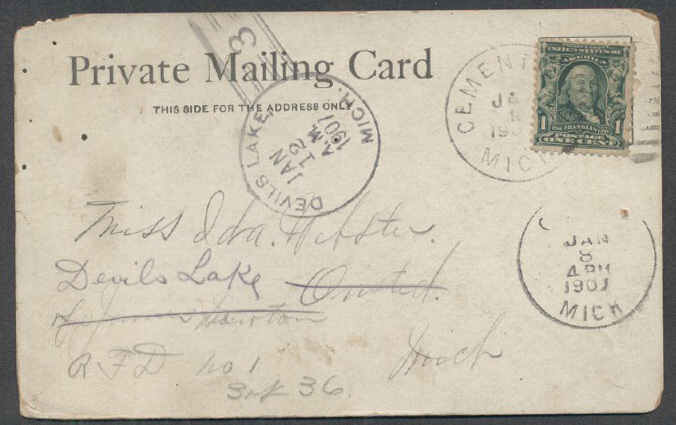 Private Mailing Card
THIS SIDE FOR THE ADDRESS ONLY
3
DEVILS LAKE, MICH.
JAN
12
A.M.
1907
CEMENT
JA
8
190
MICH
UNITED STATES OF
AMERICA
1 1
POSTAGE
ONE CENT
Miss Ida. Webster.
Devils Lake Onsted.
JAN
8
4 PM
1907
MICH
R F D no 1
Mich
36